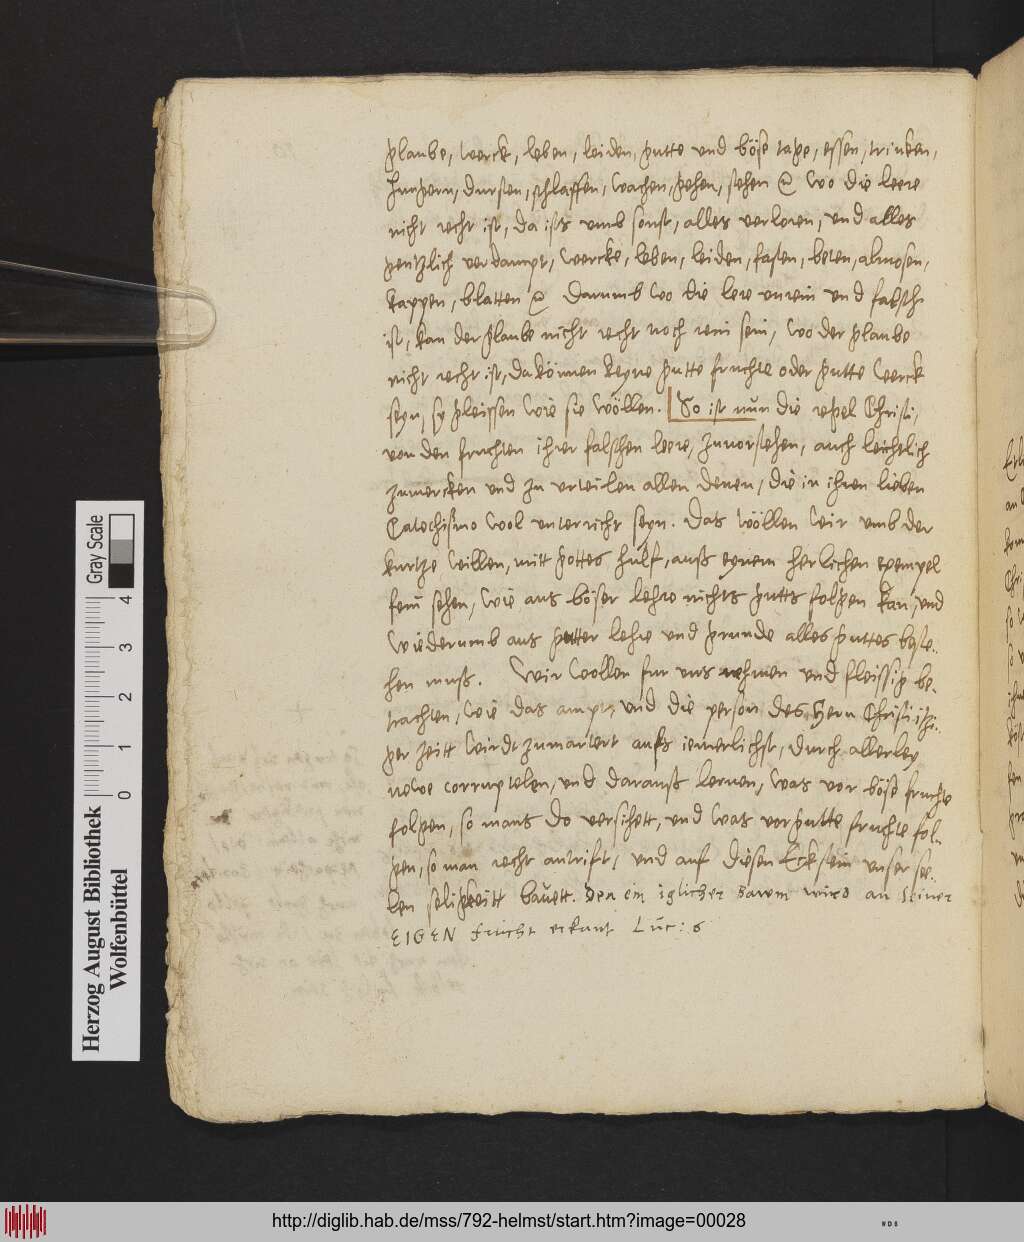 glaube, werck, leben, leiden, gutte und böse tage, essen, trincken,
hungern, dursten, schlaffen, wachen, gehen, stehen ꝛc Wo die leere
nicht recht ist, da ists umb sonst, alles verloren, und alles
gentzlich verdampt, wercke, leben, leiden, fasten, beten, almosen,
kappen, blatten ꝛc Darumb wo die lere unrein und falsch
ist, kan der glaube nicht recht noch rein sein, wo der glaube
nicht recht ist, da können keyne gutte fruchte oder gutte werck
seyn, sy gleissen wie sie wöllen. So ist nun die regel Christi,
von den fruchten ihrer falschen leere, zuvorstehen, auch leichtlich
zumercken und zu urteilen allen denen, die in ihren lieben
Catechismo wol unterricht seyn. Das wöllen wir umb der
kurtze willen, mitt gottes hulf, auß eynem herlichen exempel
fein sehen, wie aus böser lehre nichts gutts folgen kan, und
wiederumb aus gutter lehre und grunde alles guttes beste-
hen muß. Wir wollen fur uns nehmen und fleissig be-
trachten, wie das ampt, und die person des Hern Christi itzi-
ger zeitt wirdt zumartert aufs iemerlichst, durch allerley
newe corruptelen, und darauß lernen, was vor böse fruchte
folgen, so mans do versihett, und was vor gutte fruchte fol-
gen, so man recht antrift, und auf diesen Eckstein unser see-
len seligkeitt bauett. Den ein iglicher Baum wird an Seiner
EIGEN frucht erkant Luc: 6
Herzog August Bibliothek
Wolfenbüttel
Gray Scale
0 1 2 3 4
http://diglib.hab.de/mss/792-helmst/start.htm?image=00028